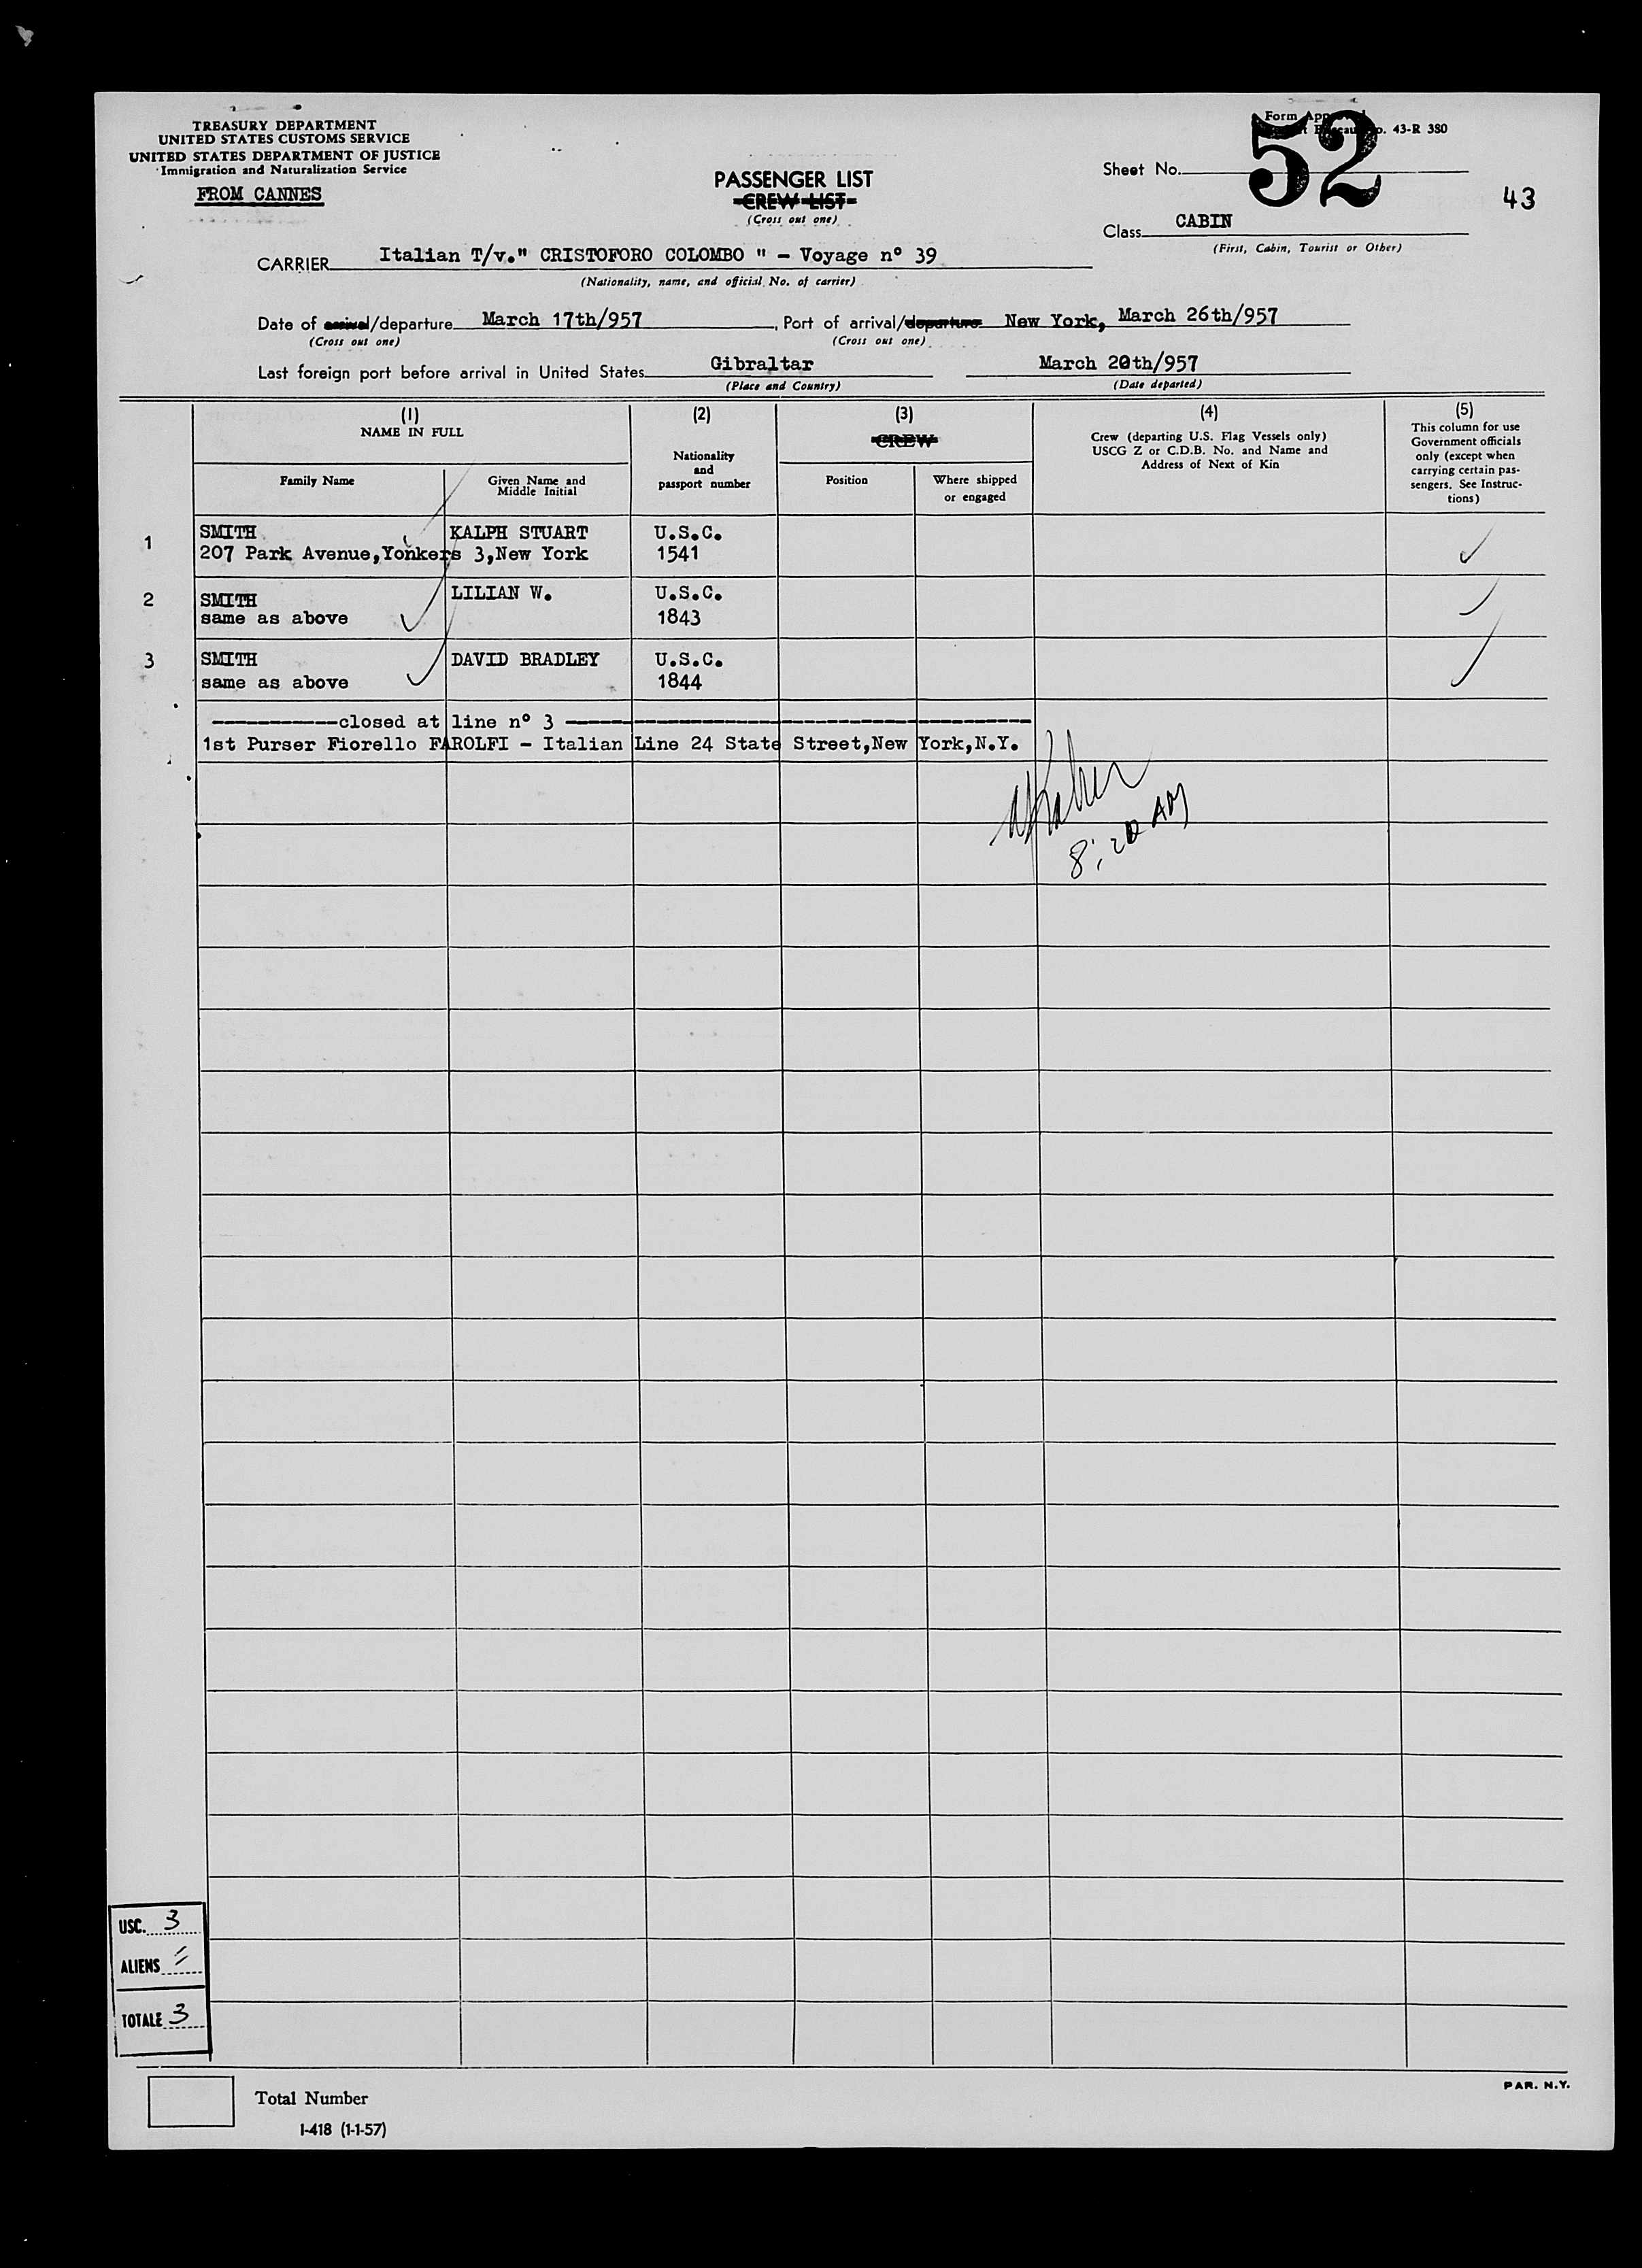 TREASURY DEPARTMENT
UNITED STATES CUSTOMS SERVICE
UNITED STATES DEPARTMENT OF JUSTICE
Immigration and Naturalization Service
FROM CANNES
PASSENGER LIST
CREW LIST
(Cross out one)
Form
43-R 380
Sheet No. 52
43
Class CABIN
(First, Cabin, Tourist or Other)
CARRIER Italian T/v." CRISTOFORO COLOMBO " - Voyage n° 39
(Nationality, name, and official No. of carrier)
Date of arrival/departure March 17th/957, Port of arrival/departure New York, March 26th/957
(Cross out one) (Cross out one)
Last foreign port before arrival in United States Gibraltar March 20th/957
(Place and Country) (Date departed)
(1) (2) (3) (4) (5)
NAME IN FULL
Family Name
Given Name and
Middle Initial
Nationality
and
passport number
CREW
Position
Where shipped
or engaged
Crew (departing U.S. Flag Vessels only)
USCG Z or C.D.B. No. and Name and
Address of Next of Kin
This column for use
Government officials
only (except when
carrying certain pas-
sengers. See Instruc-
tions)
1 SMITH KALPH STUART U.S.C.
207 Park Avenue,Yonkers 3,New York 1541
2 SMITH LILIAN W. U.S.C.
same as above 1843
3 SMITH DAVID BRADLEY U.S.C.
same as above 1844
closed at line n° 3
1st Purser Fiorello FAROLFI - Italian Line 24 State Street,New York,N.Y.
8:20 AM
USC. 3
ALIENS =
TOTALE 3
Total Number
I-418 (1-1-57)
PAR. N.Y.